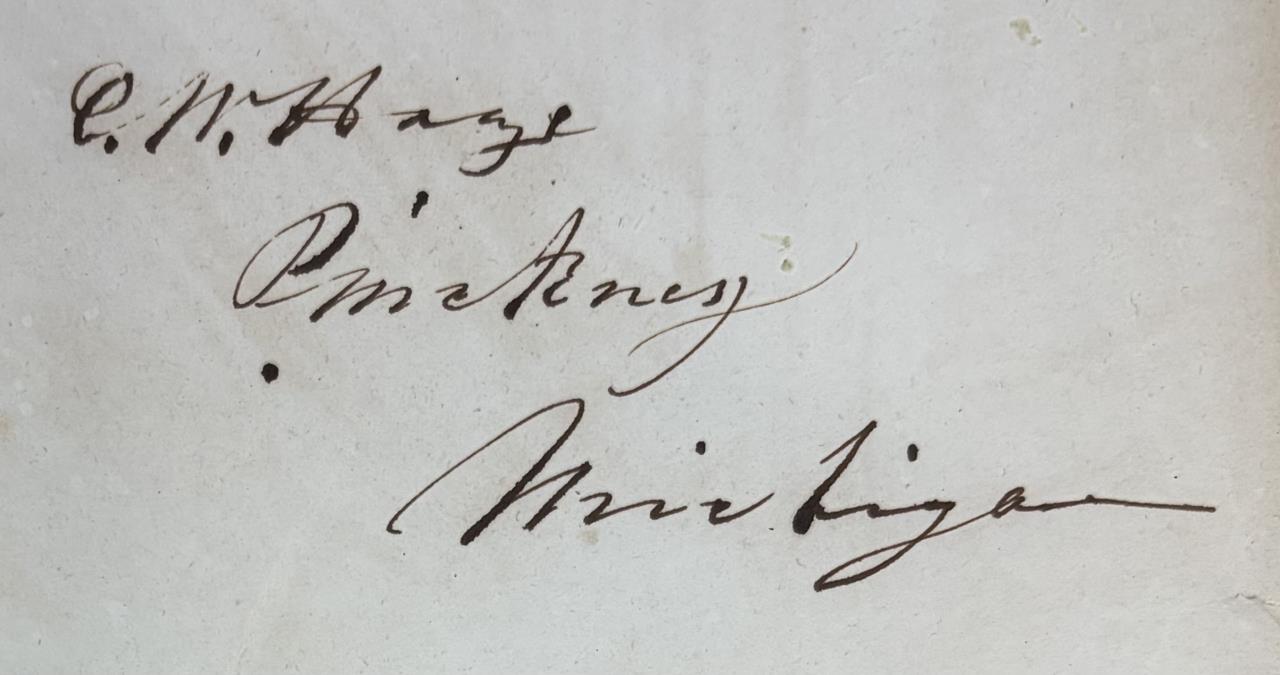 C. W. Haze
Pinckney
Michigan